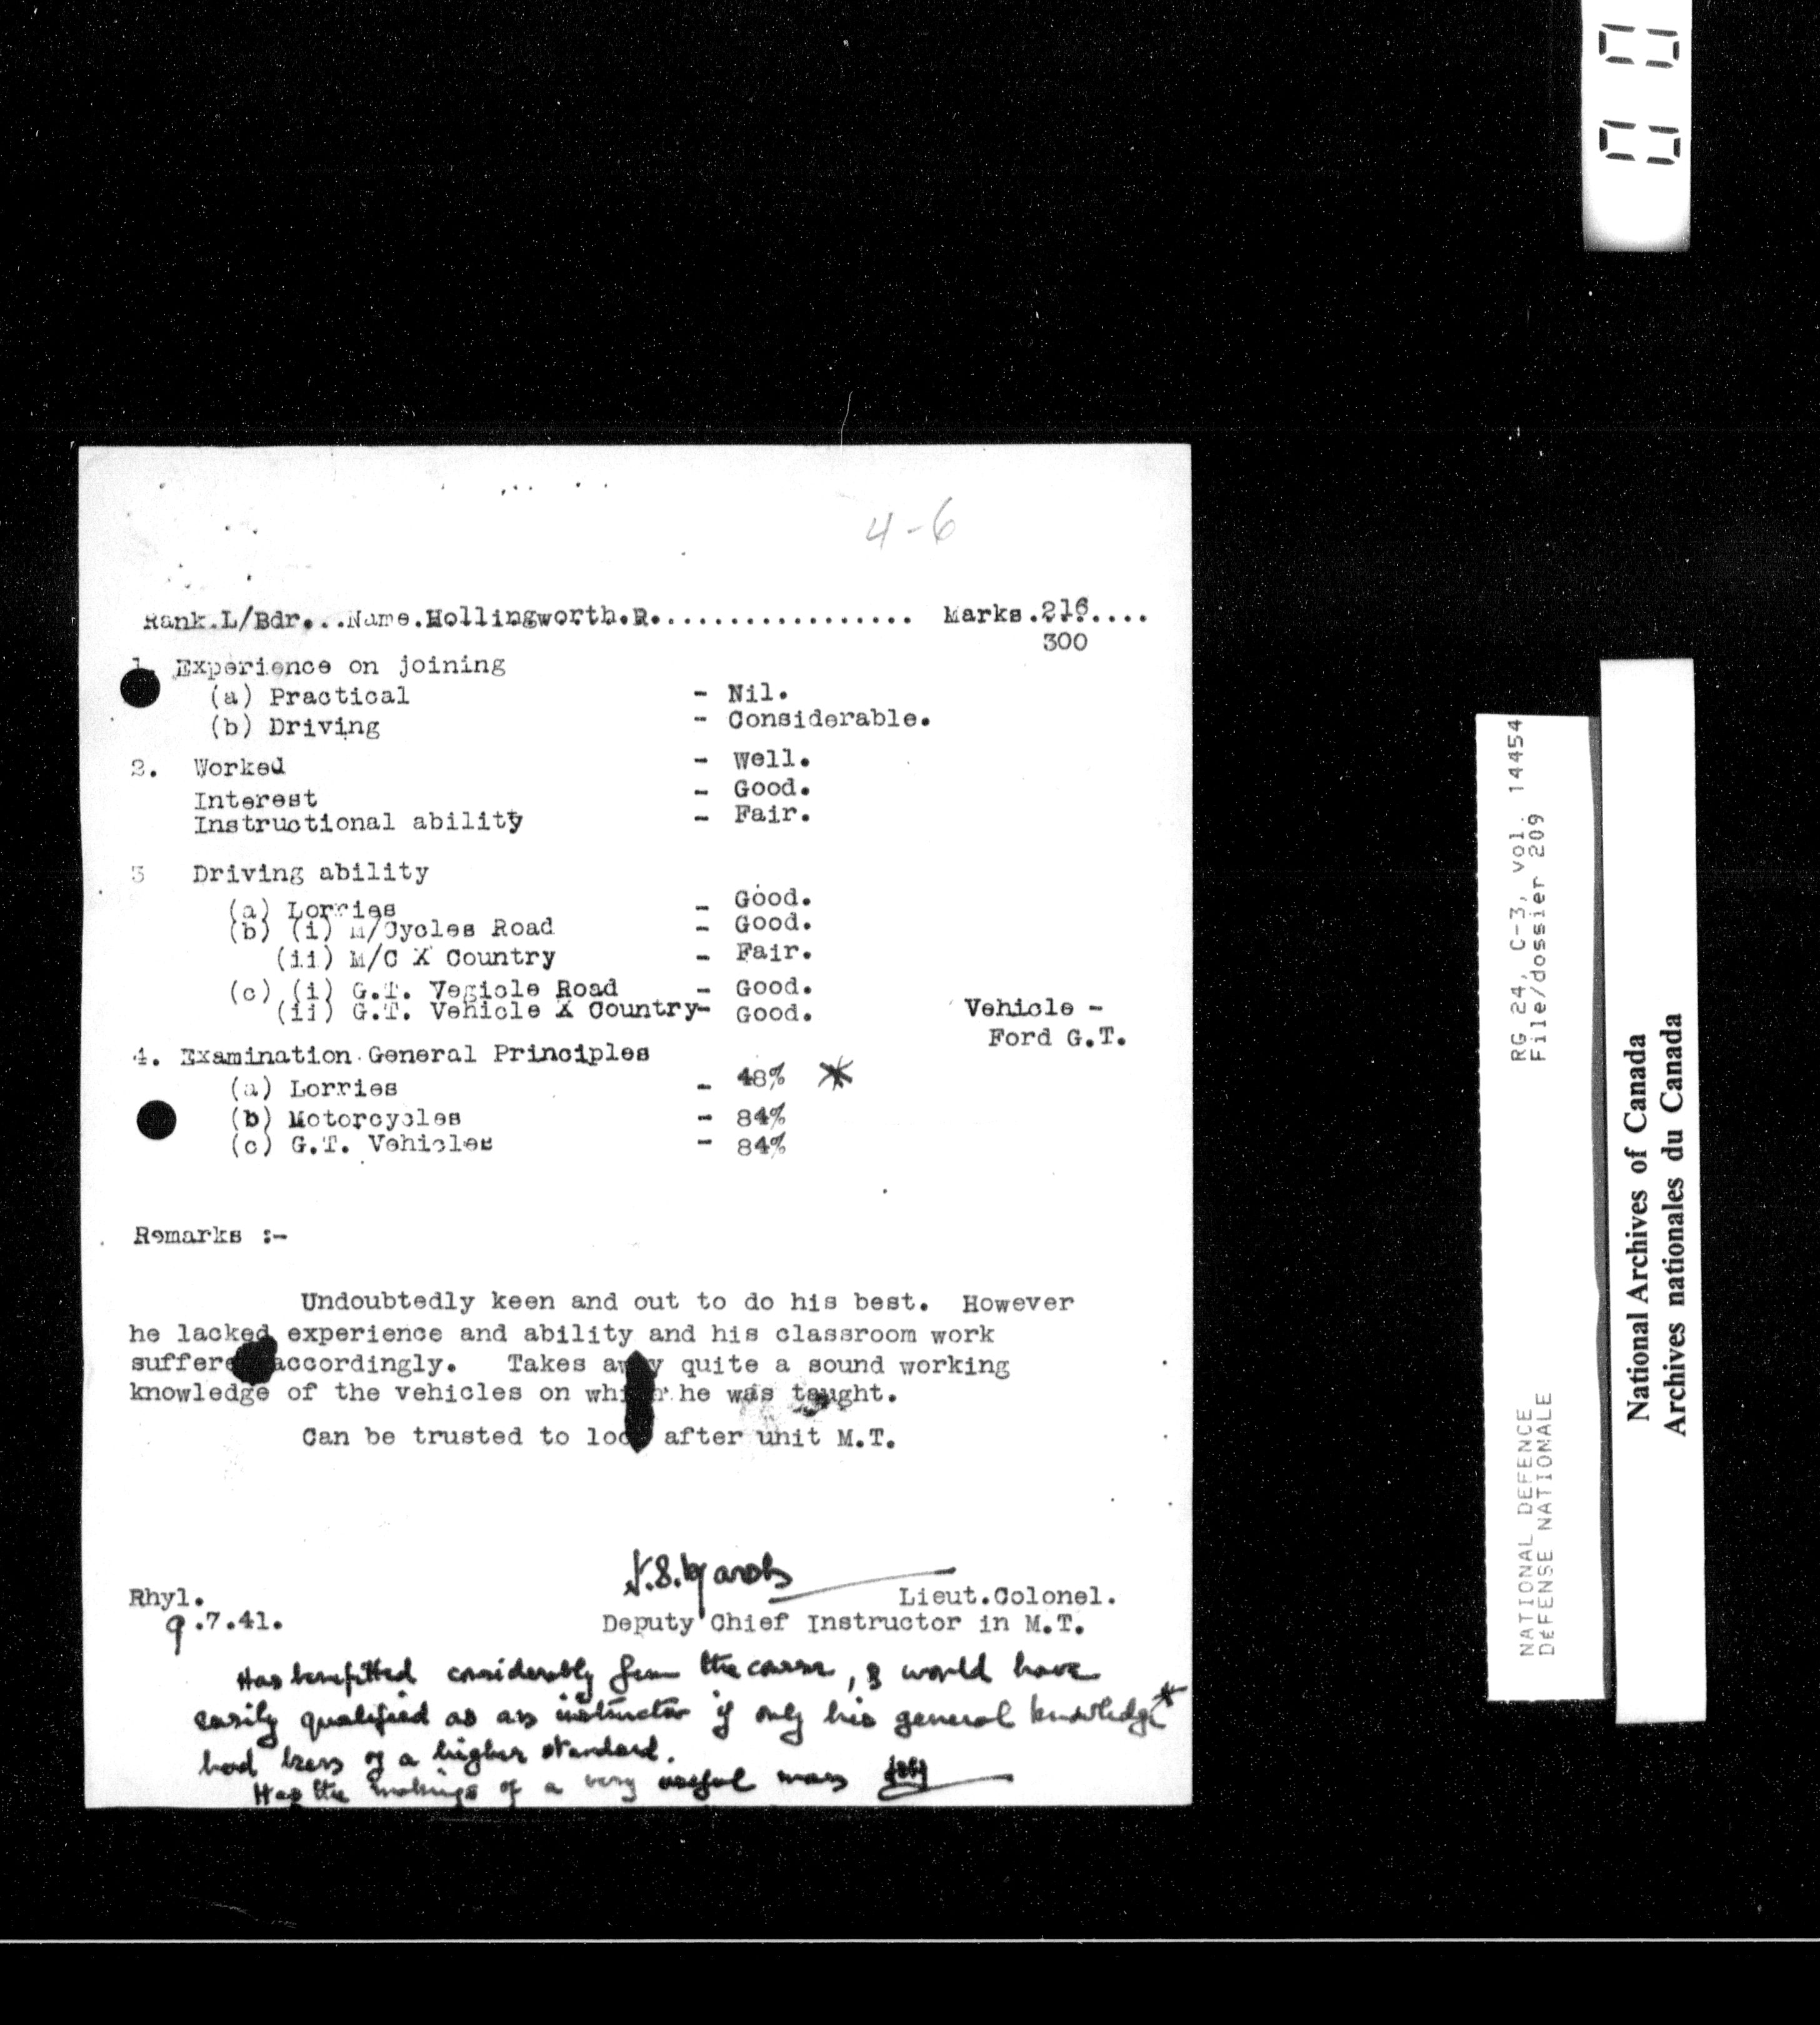 4-6
Rank.L/Bdr...Name.Hollingworth.R................. Marks.216....
300
1. Experience on joining
(a) Practical - Nil.
(b) Driving - Considerable.
2. Worked - Well.
Interest - Good.
Instructional ability - Fair.
3 Driving ability
(a) Lorries - Good.
(b) (i) M/Cycles Road - Good.
(ii) M/C X Country - Fair.
(c) (i) G.T. Vegicle Road - Good.
(ii) G.T. Vehicle X Country- Good.
Vehicle -
Ford G.T.
4. Examination General Principles
(a) Lorries - 48% *
(b) Motorcycles - 84%
(c) G.T. Vehicles - 84%
Remarks :-
Undoubtedly keen and out to do his best. However
he lacked experience and ability and his classroom work
suffered accordingly. Takes away quite a sound working
knowledge of the vehicles on which he was taught.
Can be trusted to look after unit M.T.
Lieut.Colonel.
Rhyl.
9.7.41.
Deputy Chief Instructor in M.T.
Has benefitted considerably from the course, & would have
easily qualified as an instructor if only his general knowledge *
had been of a higher standard.
Has the makings of a very useful man
RG 24, C-3, vol. 14454
File/dossier 209
NATIONAL DEFENCE
DÉFENSE NATIONALE
National Archives of Canada
Archives nationales du Canada